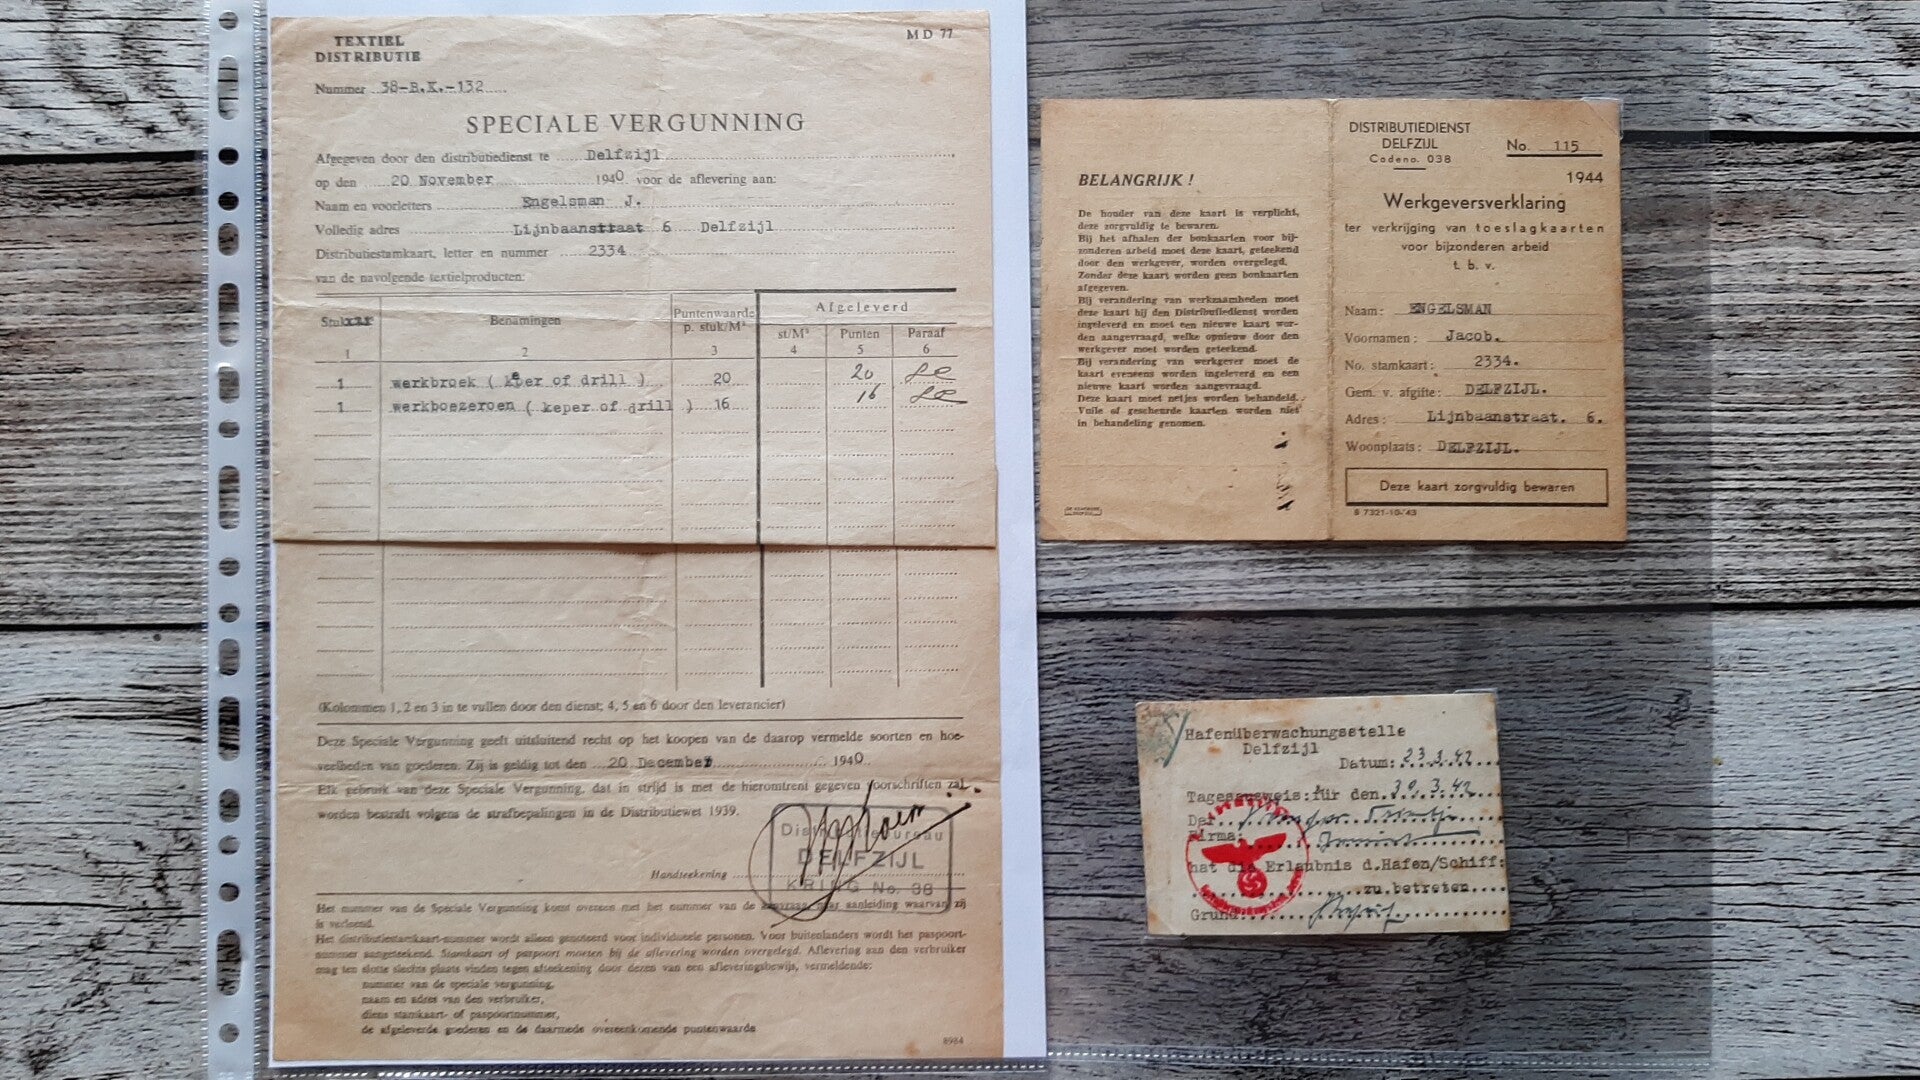 TEXTIEL
DISTRIBUTIE
MD 77
Nummer 38-B.X.-132
SPECIALE VERGUNNING
Afgegeven door den distributiedienst te Delfzijl
op den 20 November 1940 voor de aflevering aan:
Naam en voorletters Engelsman J.
Volledig adres Lijnbaanstraat 6 Delfzijl
Distributiestamkaart, letter en nummer 2334
van de navolgende textielproducten:
Benamingen
Puntenwaarde
p. stuk/M²
Afgeleverd
st/M² Punten Paraaf
1 2 3 4 5 6
1 werkbroek ( keper of drill ) 20 20
1 werkboezeroen ( keper of drill ) 16 16
(Kolommen 1, 2 en 3 in te vullen door den dienst; 4, 5 en 6 door den leverancier)
Deze Speciale Vergunning geeft uitsluitend recht op het koopen van de daarop vermelde soorten en hoe-
veelheden van goederen. Zij is geldig tot den 20 December 1940
Elk gebruik van deze Speciale Vergunning, dat in strijd is met de hieromtrent gegeven voorschriften zal
worden bestraft volgens de strafbepalingen in de Distributiewet 1939.
Distributiebureau
DELFZIJL
KRING No. 38
Handteekening
Het nummer van de Speciale Vergunning komt overeen met het nummer van de aanvraag, naar aanleiding waarvan zij
is verleend.
Het distributiestamkaart-nummer wordt alleen genoteerd voor individueele personen. Voor buitenlanders wordt het paspoort-
nummer aangeteekend. Stamkaart of paspoort moeten bij de aflevering worden overgelegd. Aflevering aan den verbruiker
mag ten slotte slechts plaats vinden tegen afteekening door dezen van een afleveringsbewijs, vermeldende:
nummer van de speciale vergunning,
naam en adres van den verbruiker,
diens stamkaart- of paspoortnummer,
de afgeleverde goederen en de daarmede overeenkomende puntenwaarde
8984
BELANGRIJK !
De houder van deze kaart is verplicht,
deze zorgvuldig te bewaren.
Bij het afhalen der bonkaarten voor bij-
zonderen arbeid moet deze kaart, geteekend
door den werkgever, worden overgelegd.
Zonder deze kaart worden geen bonkaarten
afgegeven.
Bij verandering van werkzaamheden moet
deze kaart bij den Distributiedienst worden
ingeleverd en moet een nieuwe kaart wor-
den aangevraagd, welke opnieuw door den
werkgever moet worden geteekend.
Bij verandering van werkgever moet de
kaart eveneens worden ingeleverd en een
nieuwe kaart worden aangevraagd.
Deze kaart moet netjes worden behandeld.
Vuile of gescheurde kaarten worden niet
in behandeling genomen.
DISTRIBUTIEDIENST
DELFZIJL
Codeno. 038
No. 115
1944
Werkgeversverklaring
ter verkrijging van toeslagkaarten
voor bijzonderen arbeid
t. b. v.
Naam: ENGELSMAN
Voornamen: Jacob.
No. stamkaart: 2334.
Gem. v. afgifte: DELFZIJL.
Adres: Lijnbaanstraat. 6.
Woonplaats: DELFZIJL.
Deze kaart zorgvuldig bewaren
S 7321-10-'43
Hafenüberwachungsstelle
Delfzijl
Datum: 23.3.42
Tagesausweis: für den 30.3.42
Der
Firma:
hat die Erlaubnis d.Hafen/Schiff:
zu betreten
Grund